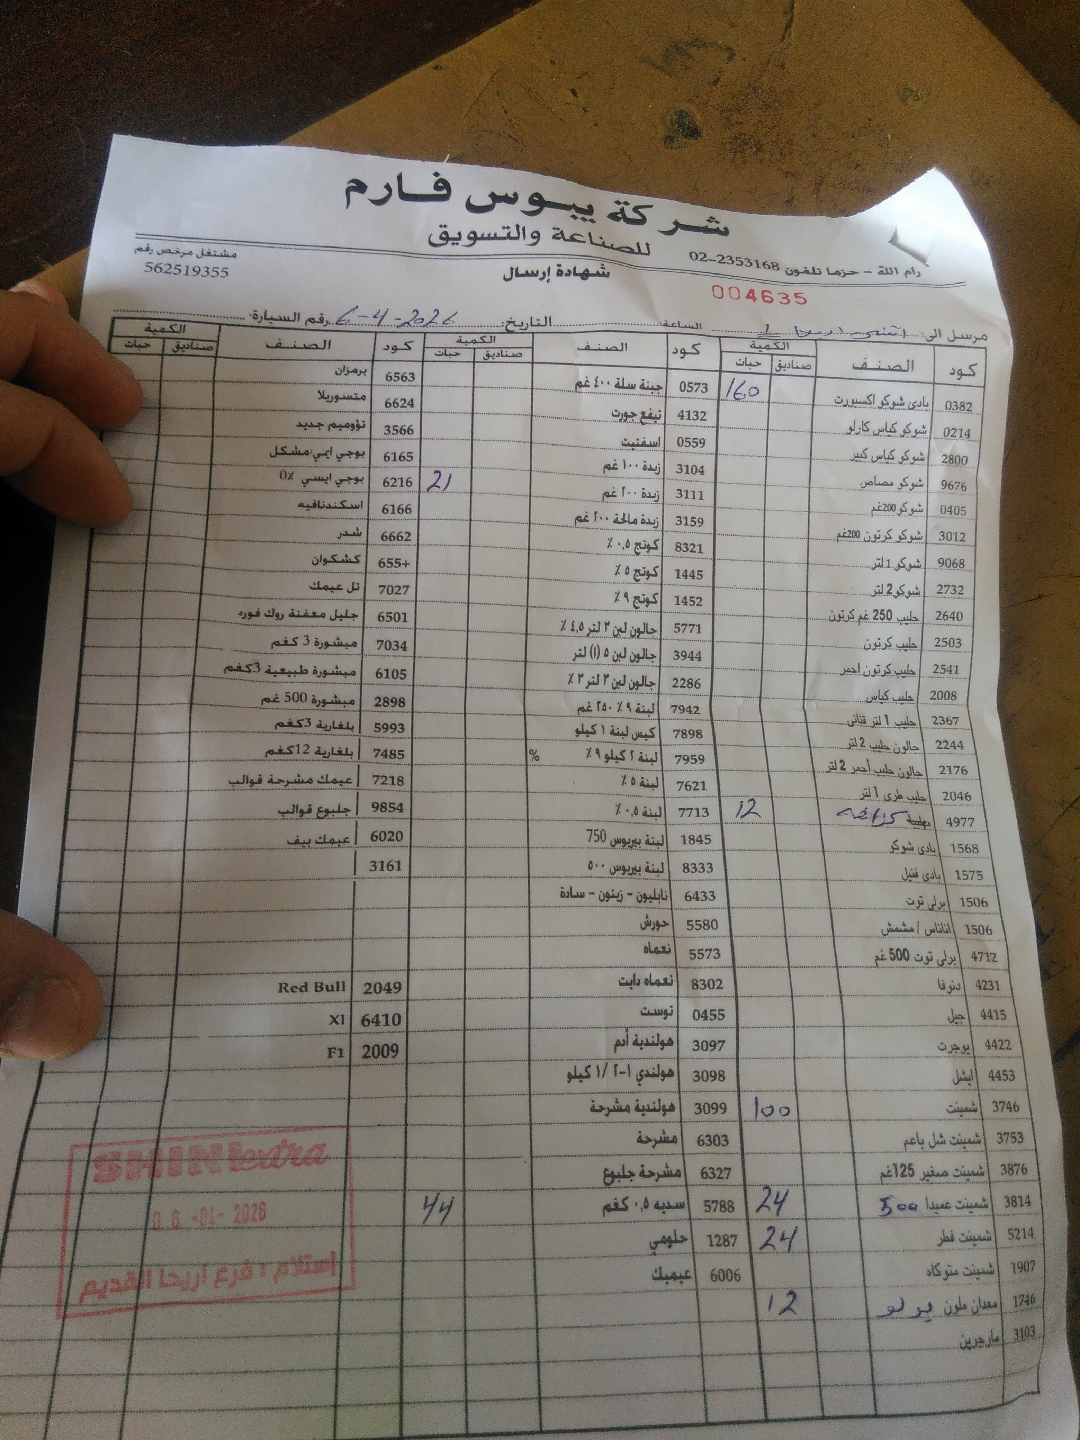 شركة يبوس فارم
للصناعة والتسويق
رام الله - حزما تلفون 02-2353168
مشتغل مرخص رقم
562519355
شهادة إرسال
004635
مرسل الى:
الساعة
التاريخ: 6-4-2026
رقم السيارة:
كود الصنف الكمية صناديق حبات
0382 بادي شوكو اكسبورت 160
0214 شوكو كياس كارلو
2800 شوكو كياس كبير
9676 شوكو مصاص
0405 شوكو 200غم
3012 شوكو كرتون 200غم
9068 شوكو 1 لتر
2732 شوكو 2 لتر
2640 حليب 250 غم كرتون
2503 حليب كرتون
2541 حليب كرتون أحمر
2008 حليب كياس
2367 حليب 1 لتر قناني
2244 جالون حليب 2 لتر
2176 جالون حليب أحمر 2 لتر
2046 حليب طري 1 لتر
4977 مهلبية 12
1568 بادي شوكو
1575 بادي فنيل
1506 برلي توت
1506 اناناس / مشمش
4712 برلي توت 500 غم
4231 دنوفا
4415 جيل
4422 يوجرت
4453 ايشل
3746 شمينت 100
3753 شمينت شل باعم
3876 شمينت صغير 125غم
3814 شمينت عميدا 500 24
5214 شمينت قطر 24
1907 شمينت متوكاه
1746 معدان ملون 12
3103 مارجرين
كود الصنف الكمية صناديق حبات
0573 جبنة سلة ٤٠٠ غم
4132 تيفع جورت
0559 اسفنيت
3104 زبدة ١٠٠ غم
3111 زبدة ٢٠٠ غم 21
3159 زبدة مالحة ٢٠٠ غم
8321 كوتج ٠,٥ ٪
1445 كوتج ٥ ٪
1452 كوتج ٩ ٪
5771 جالون لبن ٣ لتر ٤,٥ ٪
3944 جالون لبن ٥ (١) لتر
2286 جالون لبن ٣ لتر ٣ ٪
7942 لبنة ٩ ٪ ٢٥٠ غم
7898 كيس لبنة ١ كيلو
7959 لبنة ٢ كيلو ٩ ٪ %
7621 لبنة ٥ ٪
7713 لبنة ٠,٥ ٪
1845 لبنة بيريوس 750
8333 لبنة بيريوس ٥٠٠
6433 نابليون - زيتون - سادة
5580 حورش
5573 نعماه
8302 نعماه دايت
0455 توست
3097 هولندية أدم
3098 هولندي ٢-١ /١ كيلو
3099 هولندية مشرحة
6303 مشرحة
6327 مشرحة جلبوع
5788 سديه ٠,٥ كغم 44
1287 حلومي
6006 عيميك
كود الصنف الكمية صناديق حبات
6563 برمزان
6624 متسوريلا
3566 تؤوميم جديد
6165 يوجي ايمي مشكل
6216 يوجي ايسي 0٪
6166 اسكندنافيه
6662 شدر
655+ كشكوان
7027 تل عيمك
6501 جليل معفنة روك فورد
7034 مبشورة 3 كغم
6105 مبشورة طبيعية 3كغم
2898 مبشورة 500 غم
5993 بلغارية 3كغم
7485 بلغارية 12كغم
7218 عيمك مشرحة قوالب
9854 جلبوع قوالب
6020 عيمك بيف
3161
2049 Red Bull
6410 Xl
2009 F1
SHINI extra
06 -04- 2026
إستلام : فرع اريحا القديم